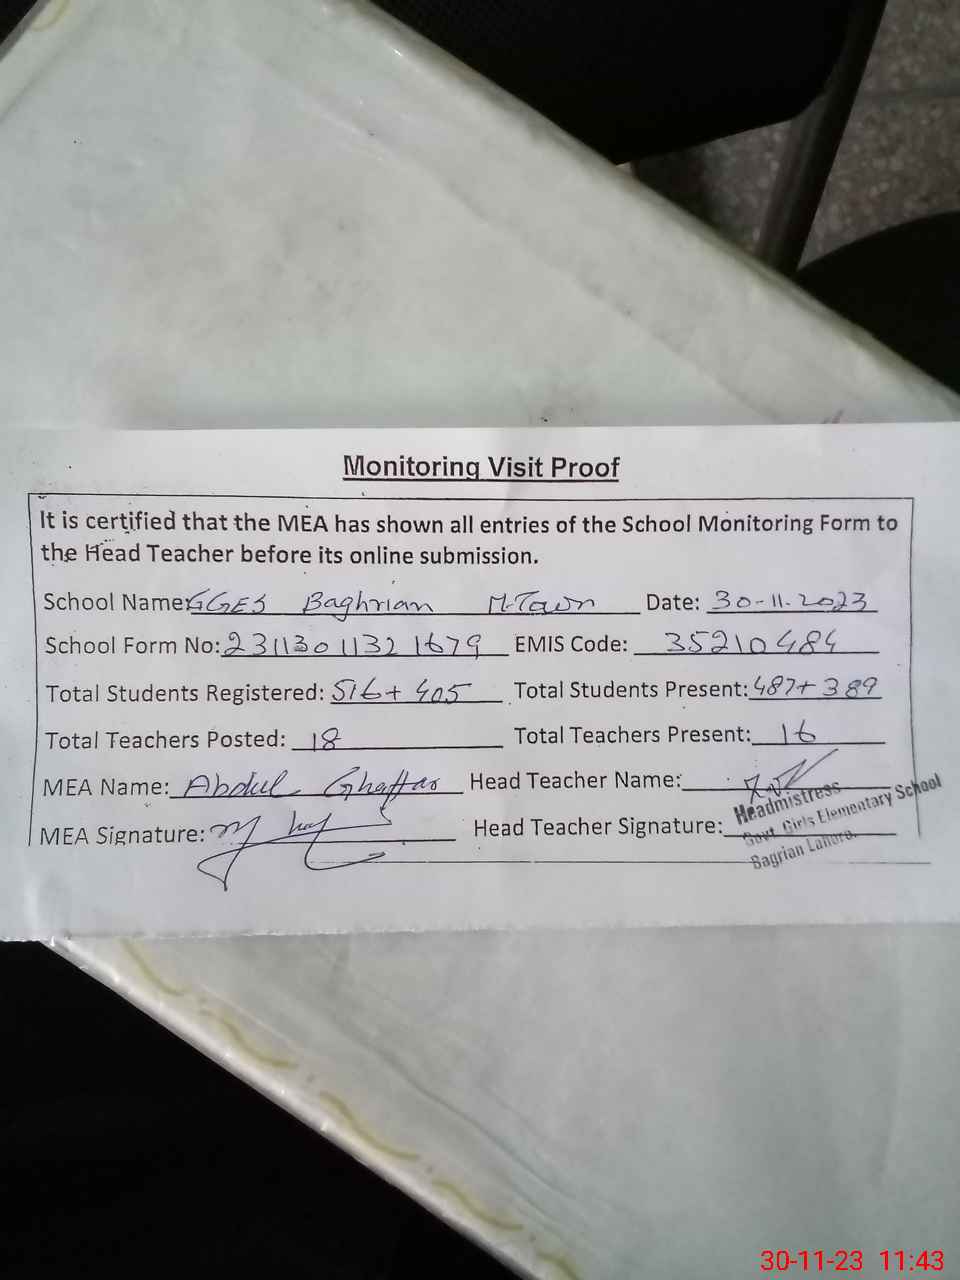 Monitoring Visit Proof
It is certified that the MEA has shown all entries of the School Monitoring Form to
the Head Teacher before its online submission.
School Name: GGES Baghrian M-Town Date: 30-11-2023
School Form No: 23113011321679 EMIS Code: 35210484
Total Students Registered: 516+405 Total Students Present: 487+389
Total Teachers Posted: 18 Total Teachers Present: 16
MEA Name: Abdul Ghaffar Head Teacher Name:
MEA Signature: Head Teacher Signature:
Headmistress
Govt. Girls Elementary School
Bagrian Lahore.
30-11-23 11:43